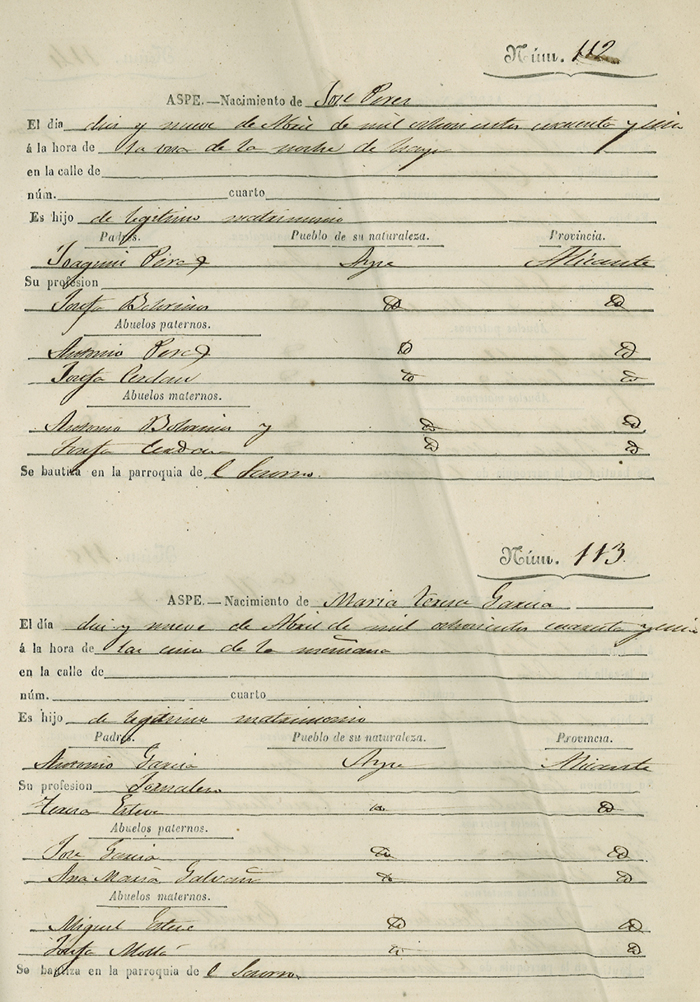 Núm. 112
ASPE.—Nacimiento de José Perez
El dia diez y nueve de Abril de mil ochocientos cuarenta y uno
á la hora de la una de la noche de
en la calle de
núm. cuarto
Es hijo de legitimo matrimonio
Padres. Pueblo de su naturaleza. Provincia.
Joaquin Perez Aspe Alicante
Su profesion
Josefa Id Id
Abuelos paternos.
Antonio Perez Id Id
Josefa Cerdan Id Id
Abuelos maternos.
Antonio y Id Id
Josefa Cerdan Id Id
Se bautiza en la parroquia de l Socorro.
Núm. 113
ASPE.—Nacimiento de Maria Teresa Garcia
El día diez y nueve de Abril de mil ochocientos cuarenta y uno
á la hora de las cinco de la mañana
en la calle de
núm. cuarto
Es hijo de legitimo matrimonio
Padres. Pueblo de su naturaleza. Provincia.
Antonio Garcia Aspe Alicante
Su profesion Jornalero
Teresa Esteve Id Id
Abuelos paternos.
Jose Garcia Id Id
Ana Maria Galvañ Id Id
Abuelos maternos.
Miguel Esteve Id Id
Josefa Mollá Id Id
Se bautiza en la parroquia de l Socorro